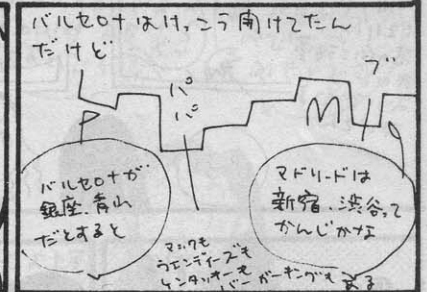 バルセロナはけっこう開けてたん
だけど
パパ
M
ブ
バルセロナが
銀座、青山
だとすると
マドリードは
新宿、渋谷って
かんじかな
マックも
ウエンディーズも
ケンタッキーも
バーガーキングもある